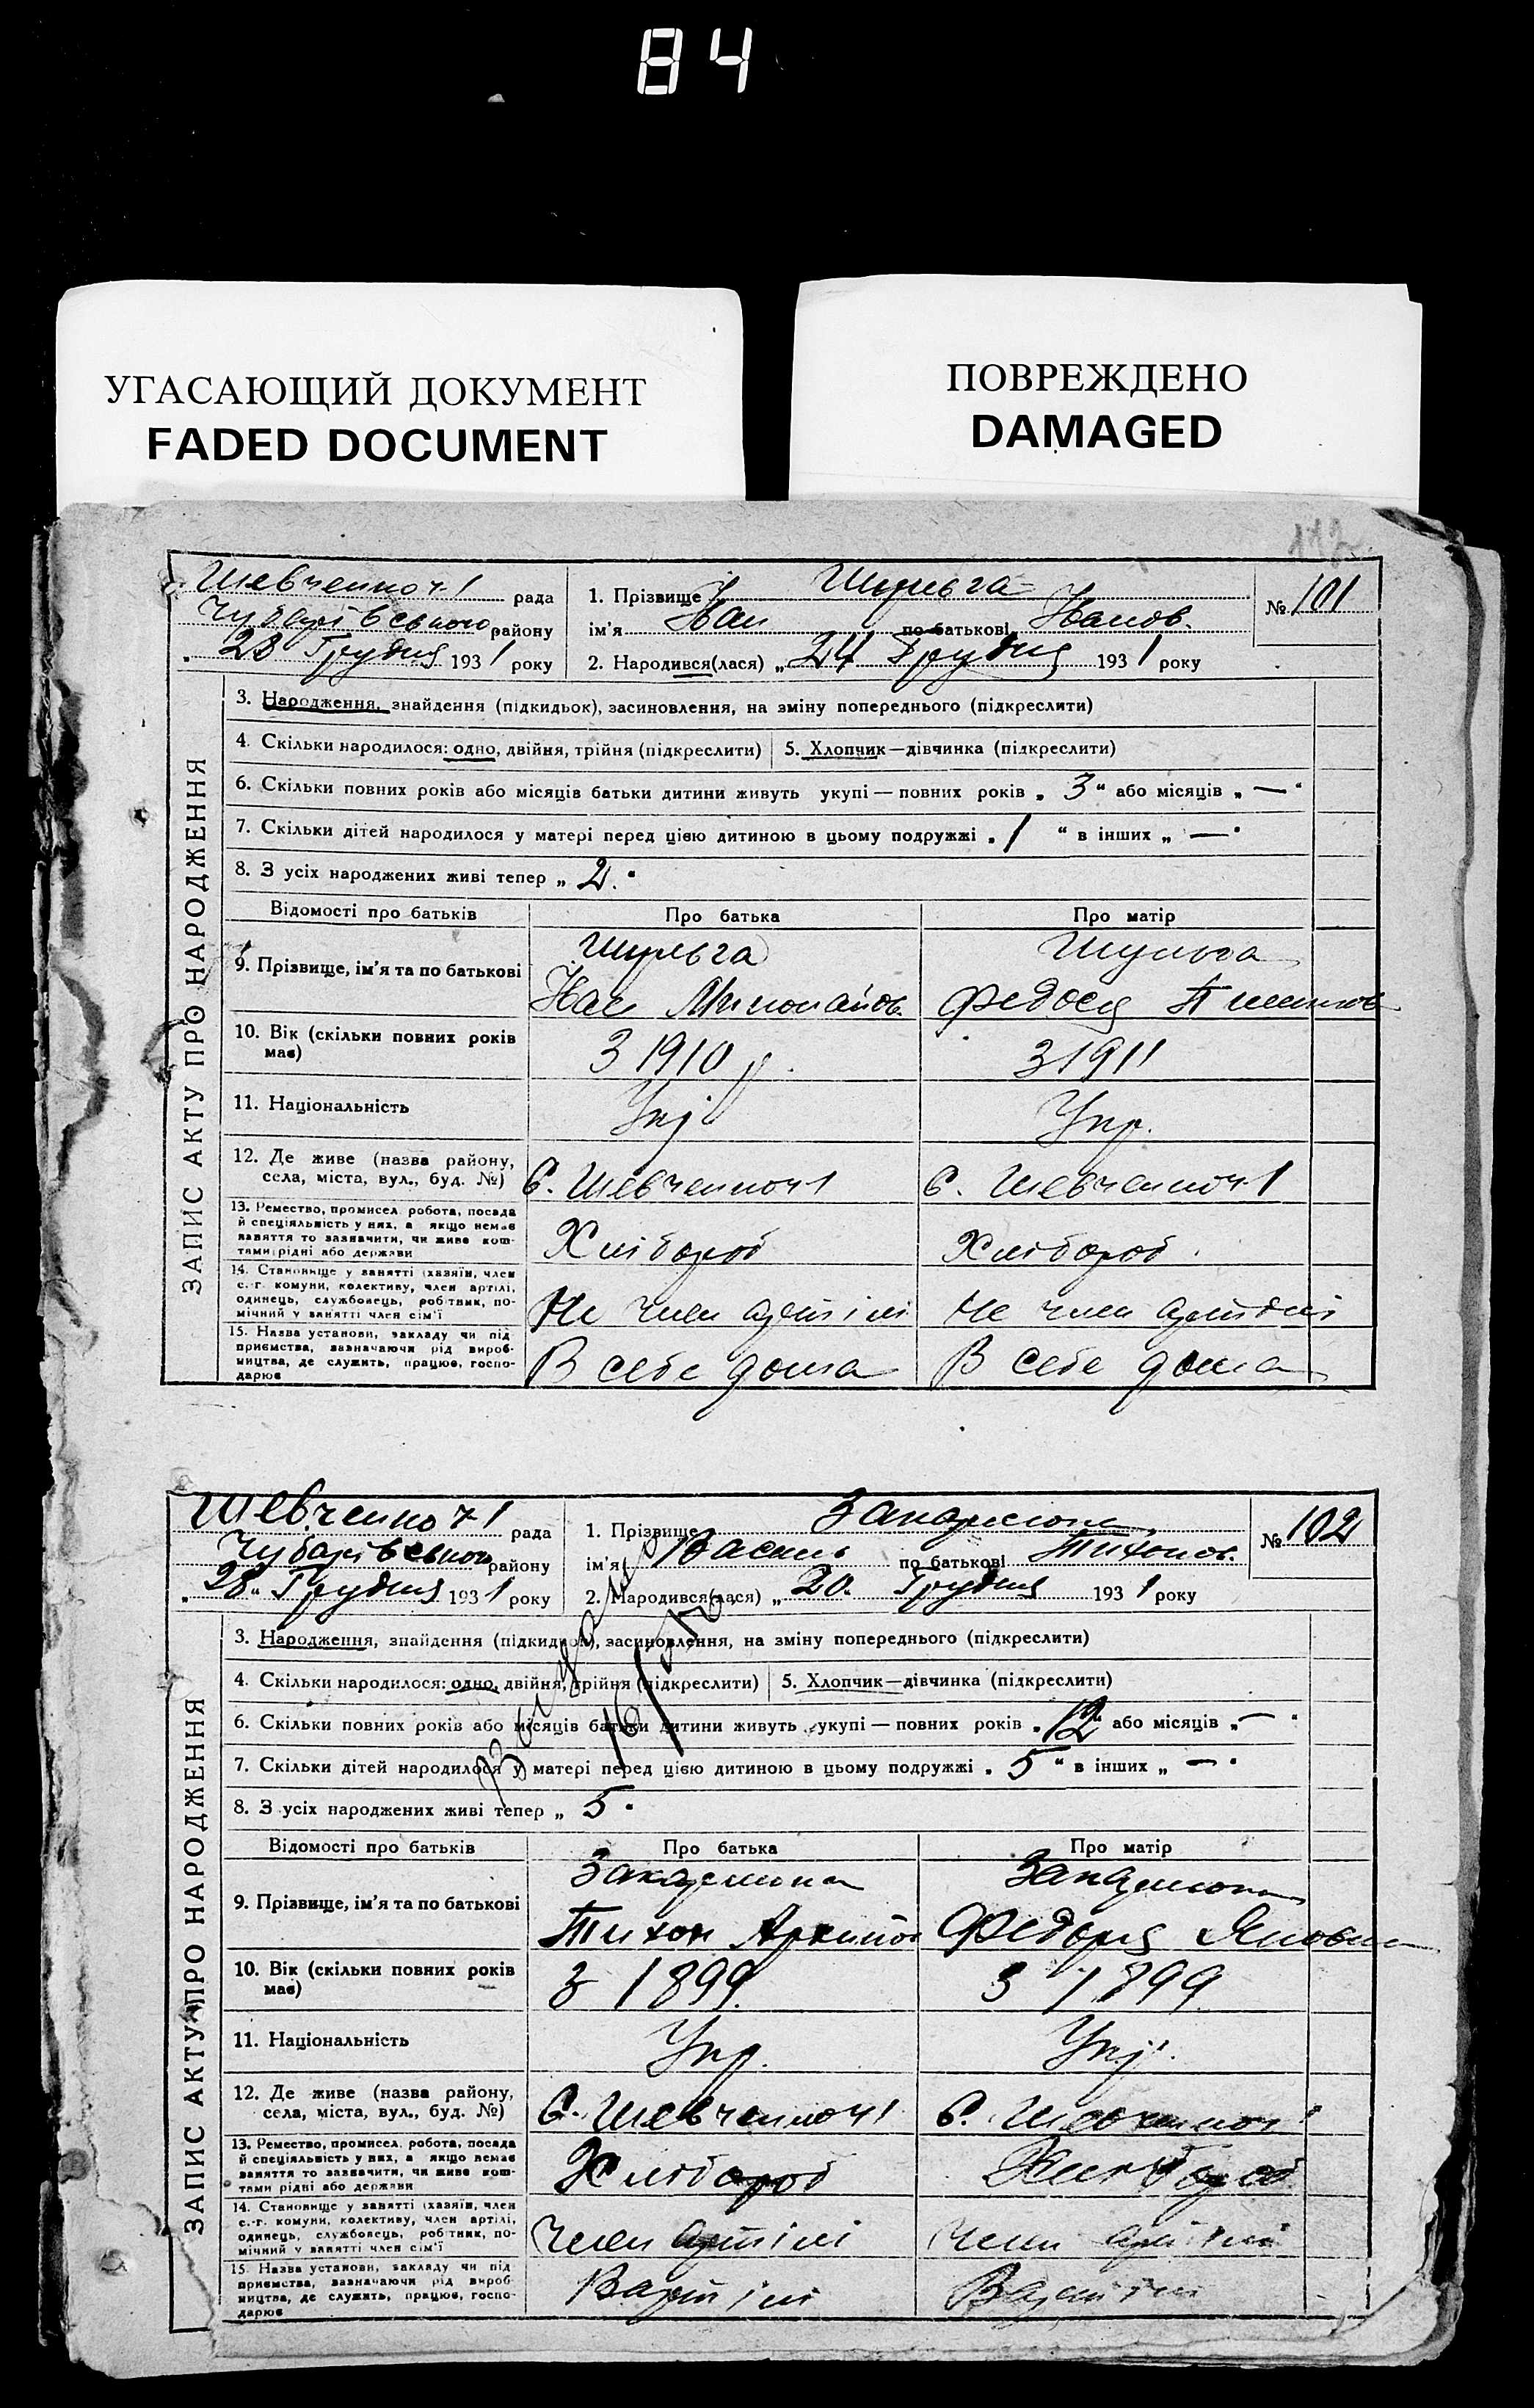 84
УГАСАЮЩИЙ ДОКУМЕНТ
FADED DOCUMENT
ПОВРЕЖДЕНО
DAMAGED
ЗАПИС АКТУ ПРО НАРОДЖЕННЯ
Шевченко ч 1 рада
Чубарівського району
„ 28 Грудня 1931 року
1. Прізвище Шульга
ім'я Іван по батькові Іванов.
2. Народився(лася) „ 24 Грудня 1931 року
№ 101
3. Народження, знайдення (підкидьок), засиновлення, на зміну попереднього (підкреслити)
4. Скільки народилося: одно, двійня, трійня (підкреслити) 5. Хлопчик—дівчинка (підкреслити)
6. Скільки повних років або місяців батьки дитини живуть укупі — повних років „ 3 “ або місяців „ — “
7. Скільки дітей народилося у матері перед цією дитиною в цьому подружжі „ 1 “ в інших „ — “
8. З усіх народжених живі тепер „ 2. “
Відомості про батьків Про батька Про матір
9. Прізвище, ім'я та по батькові
Шульга Шульга
Іван Федося
10. Вік (скільки повних років має) З 1910 р. З 1911
11. Національність Укр. Укр.
12. Де живе (назва району, села, міста, вул., буд. №) С. Шевченко ч 1 С. Шевченко ч 1
13. Ремество, промисел, робота, посада й спеціяльність у них, а якщо немає заняття то зазначити, чи живе коштами рідні або держави Хлібороб Хлібороб
14. Становище у занятті (хазяїн, член с.-г. комуни, колективу, член артілі, одинець, службовець, робітник, помічний у занятті член сім'ї Не член артілі Не член артілі
15. Назва установи, закладу чи підприємства, зазначаючи рід виробництва, де служить, працює, господарює В себе дома В себе дома
ЗАПИС АКТУ ПРО НАРОДЖЕННЯ
Шевченко ч 1 рада
Чубарівського району
„ 28 “ Грудня 1931 року
1. Прізвище
ім'я Василь по батькові Тихонов.
2. Народився(лася) „ 20. Грудня 1931 року
№ 102
3. Народження, знайдення (підкидьок), засиновлення, на зміну попереднього (підкреслити)
4. Скільки народилося: одно, двійня, трійня (підкреслити) 5. Хлопчик—дівчинка (підкреслити)
6. Скільки повних років або місяців батьки дитини живуть укупі — повних років „ 12 “ або місяців „ — “
7. Скільки дітей народилося у матері перед цією дитиною в цьому подружжі „ 5 “ в інших „ — “
8. З усіх народжених живі тепер „ 5 “
Відомості про батьків Про батька Про матір
9. Прізвище, ім'я та по батькові
Тихон Архипов Федора Яковл
10. Вік (скільки повних років має) З 1899. З 1899.
11. Національність Укр. Укр.
12. Де живе (назва району, села, міста, вул., буд. №) С. Шевченко ч 1 С. Шевченко ч 1
13. Ремество, промисел, робота, посада й спеціяльність у них, а якщо немає заняття то зазначити, чи живе коштами рідні або держави Хлібороб Хлібороб
14. Становище у занятті (хазяїн, член с.-г. комуни, колективу, член артілі, одинець, службовець, робітник, помічний у занятті член сім'ї Член артілі Член артілі
15. Назва установи, закладу чи підприємства, зазначаючи рід виробництва, де служить, працює, господарює В артілі В артілі